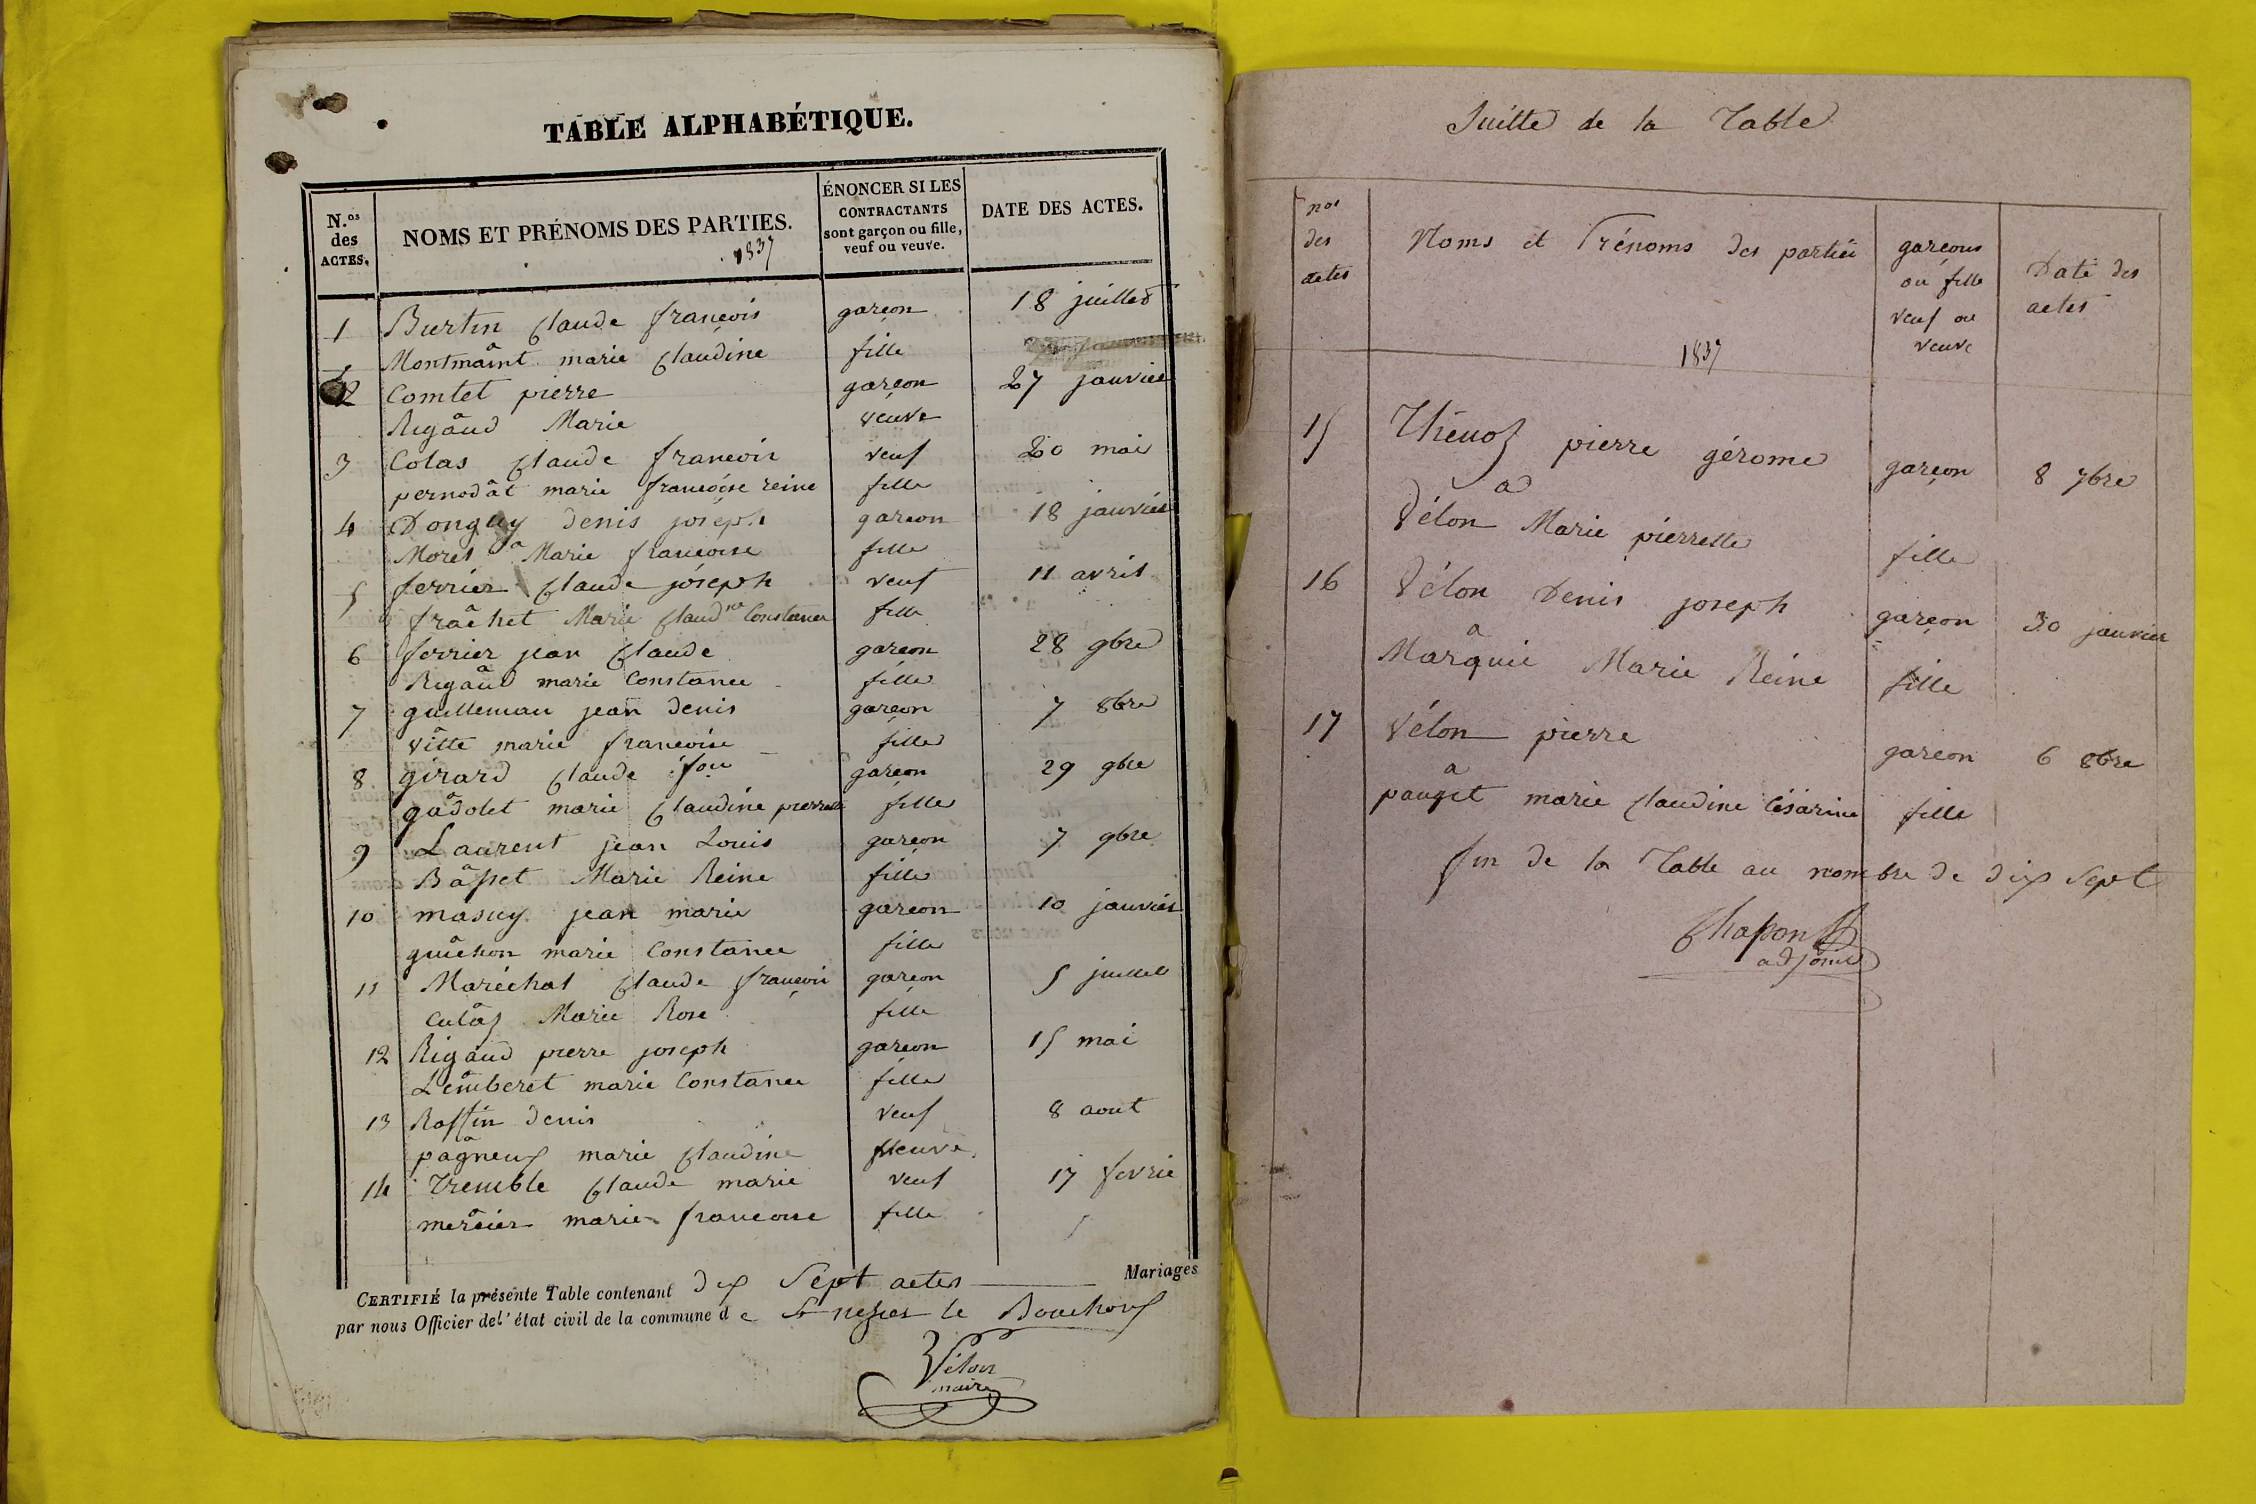 TABLE ALPHABÉTIQUE.
N.os des ACTES.
NOMS ET PRÉNOMS DES PARTIES.
1837
ÉNONCER SI LES CONTRACTANTS sont garçon ou fille, veuf ou veuve.
DATE DES ACTES.
1 Burtin Claude françois garçon 18 juillet
a
Montmaint marie Claudine fille
2 Comtet pierre garçon 27 janvier
a
Rigaud Marie veuve
3 Colas Claude francois veuf 20 mai
a
pernodat marie francoise reine fille
4 Donguy denis joseph garcon 18 janvier
a
Morel Marie francoise fille
5 ferrier Claude joseph veuf 11 avril
a
frachet Marie Claudne Constance fille
6 ferrier jean Claude garcon 28 9bre
a
Rigaud marie Constance fille
7 guilleman jean denis garçon 7 8bre
a
vitte marie francoise fille
8 girard Claude fois garcon 29 9bre
a
gadolet marie Claudine pierrette fille
9 Laurent jean Louis garçon 7 9bre
a
Basset Marie Reine fille
10 masuy jean marie garcon 10 janvier
a
guichon marie Constance fille
11 Maréchal Claude françois garcon 5 juillet
a
Marie Rose fille
12 Rigaud pierre joseph garçon 15 mai
a
Lemberet marie Constance fille
13 Raffin denis veuf 8 aout
a
pagneux marie Claudine veuve
14 Tremble Claude marie veuf 17 fevrie
a
mercier marie francoise fille
CERTIFIÉ la présente Table contenant dix Sept actes Mariages
par nous Officier de l'état civil de la commune de St le Bouchoux
Vélon
maire
Suitte de la Table
nos des actes
Noms et Prénoms des parties
garçons ou fille veuf ou veuve
Date des actes
1837
15 Thévoz pierre gérome garçon 8 7bre
a
Vélon Marie pierrette fille
16 Vélon Denis joseph garçon 30 janvier
a
Marquis Marie Reine fille
17 Vélon pierre garcon 6 8bre
a
pauget marie Claudine Césarine fille
fin de la Table au nombre de dix Sept
Chapon
adjoint